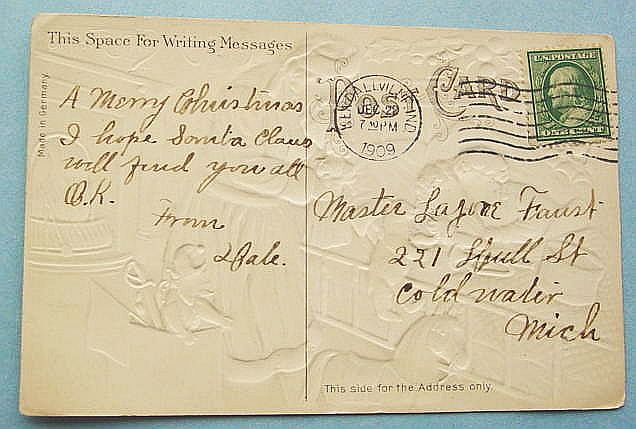 This Space For Writing Messages
Made in Germany
A Merry Christmas
I hope Santa Claus
will find you all
O.K.
From
Dale.
POST CARD
KENDALLVILLE, IND
DEC 22
7 PM
1909
U.S. POSTAGE
ONE CENT
Master Faust
221 St
Coldwater
Mich
This side for the Address only.